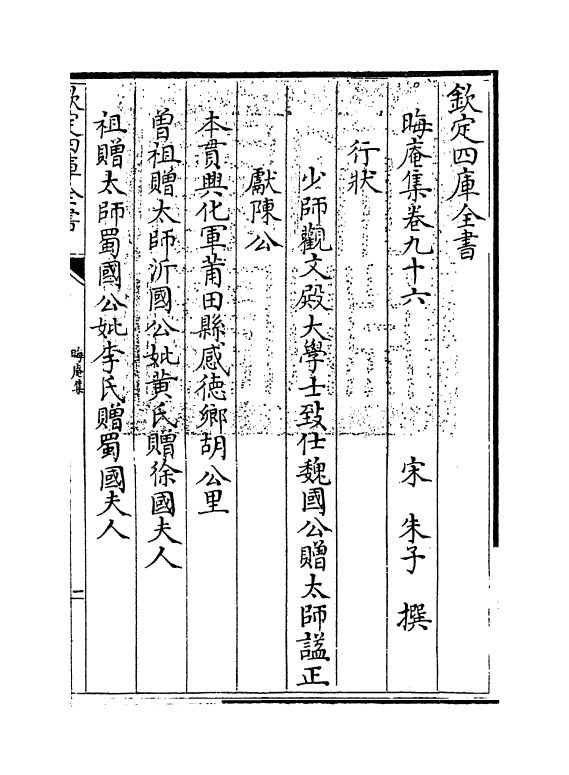 欽定四庫全書
晦庵集卷九十六　宋　朱子　撰
行狀
少師觀文殿大學士致仕魏國公贈太師諡正
獻陳公
本貫興化軍莆田縣感德鄉胡公里
曾祖贈太師沂國公妣黄氏贈徐國夫人
祖贈太師蜀國公妣李氏贈蜀國夫人
欽定四庫全書
晦庵集